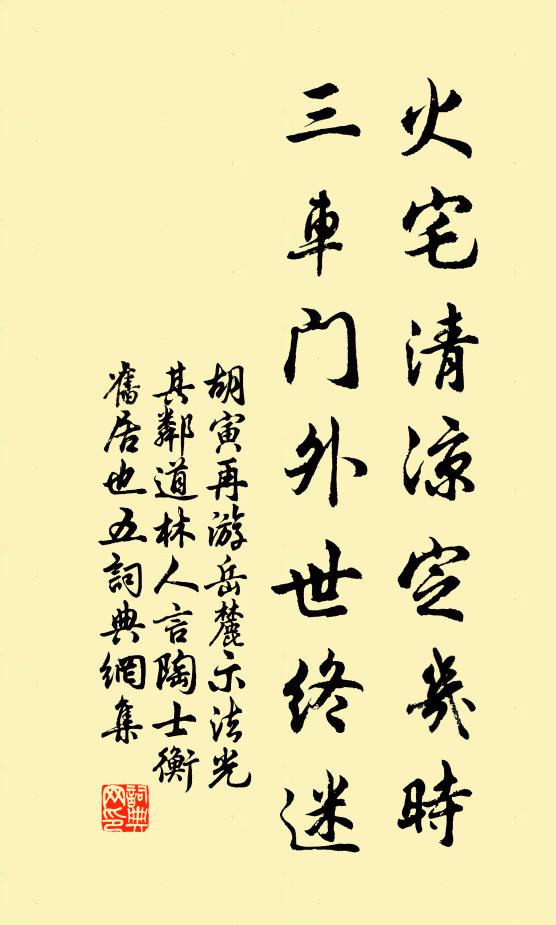 火宅清凉定幾時
三車門外世終迷
胡寅再游岳麓示法光
其鄰道林人言陶士衡
舊居也五詞典網集
詞典网印